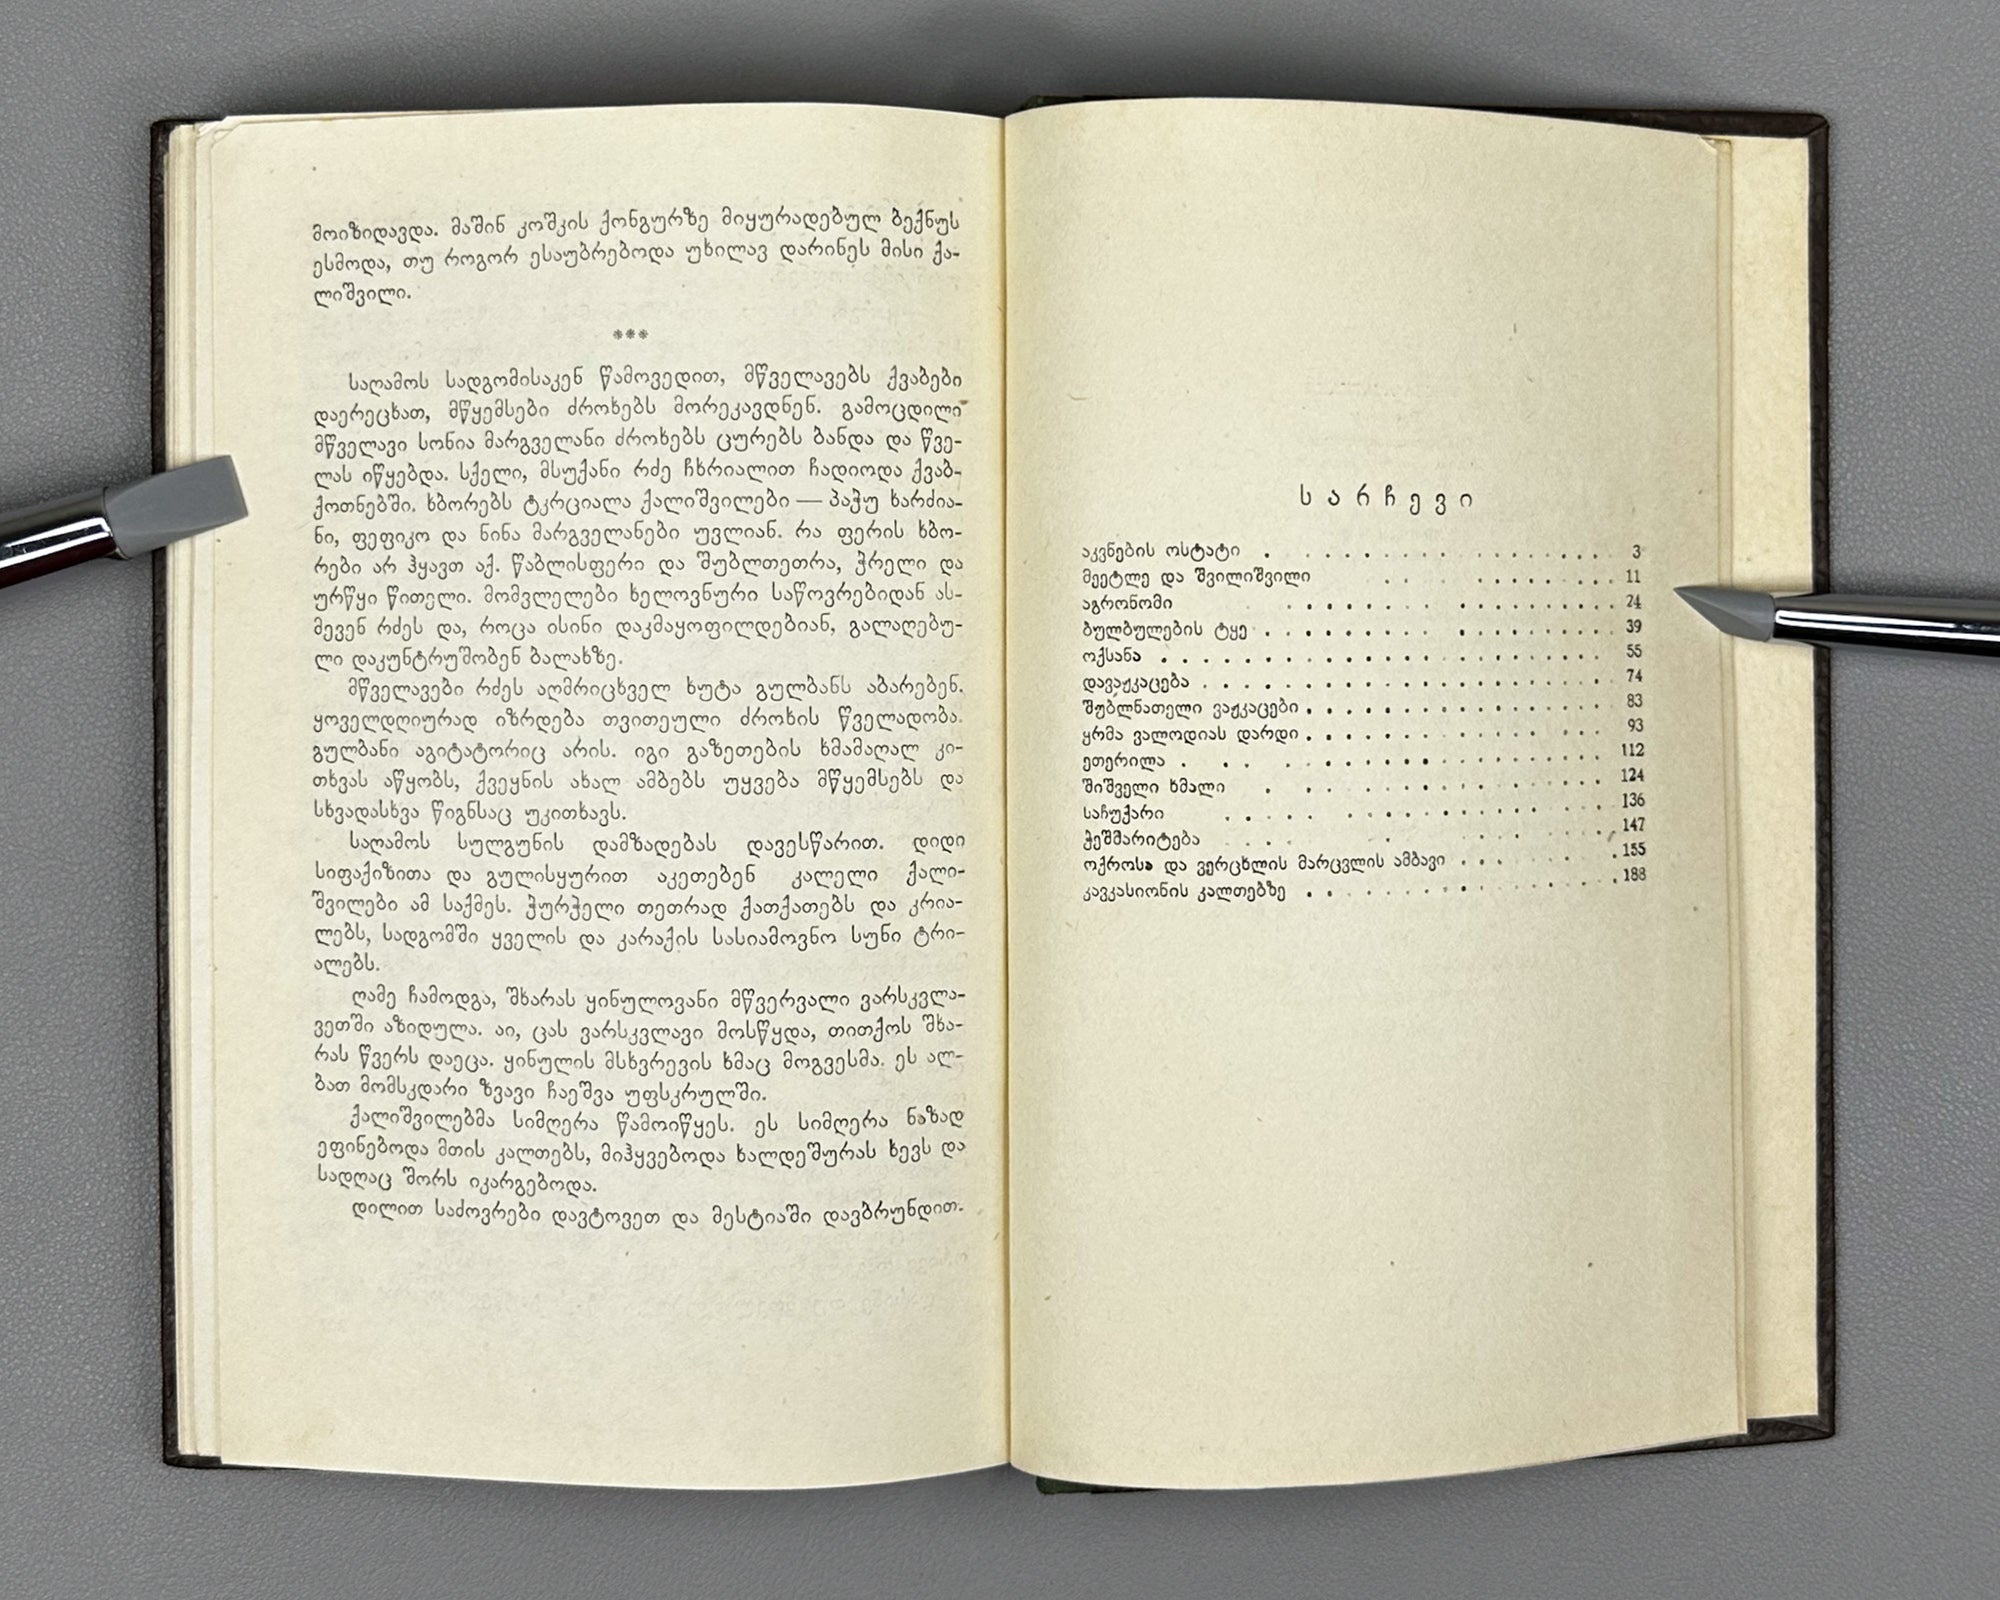 მოიზიდავდა. მაშინ კოშკის ქონგურზე მიყურადებულ ბექნუს
ესმოდა, თუ როგორ ესაუბრებოდა უხილავ დარინეს მისი ქა-
ლიშვილი.
***
საღამოს სადგომისაკენ წამოვედით, მწველავებს ქვაბები
დაერეცხათ, მწყემსები ძროხებს მორეკავდნენ. გამოცდილი
მწველავი სონია მარგველანი ძროხებს ცურებს ბანდა და წვე-
ლას იწყებდა. სქელი, მსუქანი რძე ჩხრიალით ჩადიოდა ქვაბ-
ქოთნებში. ხბორებს ტკრციალა ქალიშვილები — პაჭუ ხარძია-
ნი, ფეფიკო და ნინა მარგველანები უვლიან. რა ფერის ხბო-
რები არ ჰყავთ აქ. წაბლისფერი და შუბლთეთრა, ჭრელი და
ურწყი წითელი. მომვლელები ხელოვნური საწოვრებიდან ას-
მევენ რძეს და, როცა ისინი დაკმაყოფილდებიან, გალაღებუ-
ლი დაკუნტრუშობენ ბალახზე.
მწველავები რძეს აღმრიცხველ ხუტა გულბანს აბარებენ.
ყოველდღიურად იზრდება თვითეული ძროხის წველადობა.
გულბანი აგიტატორიც არის. იგი გაზეთების ხმამაღალ კი-
თხვას აწყობს, ქვეყნის ახალ ამბებს უყვება მწყემსებს და
სხვადასხვა წიგნსაც უკითხავს.
საღამოს სულგუნის დამზადებას დავესწარით. დიდი
სიფაქიზითა და გულისყურით აკეთებენ კალელი ქალი-
შვილები ამ საქმეს. ჭურჭელი თეთრად ქათქათებს და კრია-
ლებს, სადგომში ყველის და კარაქის სასიამოვნო სუნი ტრი-
ალებს.
ღამე ჩამოდგა, შხარას ყინულოვანი მწვერვალი ვარსკვლა-
ვეთში აზიდულა. აი, ცას ვარსკვლავი მოსწყდა, თითქოს შხა-
რას წვერს დაეცა. ყინულის მსხვრევის ხმაც მოგვესმა. ეს ალ-
ბათ მომსკდარი ზვავი ჩაეშვა უფსკრულში.
ქალიშვილებმა სიმღერა წამოიწყეს. ეს სიმღერა ნაზად
ეფინებოდა მთის კალთებს, მიჰყვებოდა ხალდეშურას ხევს და
სადღაც შორს იკარგებოდა.
დილით საძოვრები დავტოვეთ და მესტიაში დავბრუნდით.
სარჩევი
აკვნების ოსტატი . . . . . . . . . . . . 3
მეეტლე და შვილიშვილი . . . . . . . . . . 11
აგრონომი . . . . . . . . . . . . 24
ბულბულების ტყე . . . . . . . . . . . . 39
ოქსანა . . . . . . . . . . . . 55
დავაჟკაცება . . . . . . . . . . . . 74
შუბლნათელი ვაჟკაცები . . . . . . . . . . . . 83
ყრმა ვალოდიას დარდი . . . . . . . . . . . . 93
ეთერილა . . . . . . . . . . . . 112
შიშველი ხმალი . . . . . . . . . . . . 124
საჩუქარი . . . . . . . . . . . . 136
ჭეშმარიტება . . . . . . . . . . 147
ოქროსა და ვერცხლის მარცვლის ამბავი . . . . . . 155
კავკასიონის კალთებზე . . . . . . . . . . . . 188